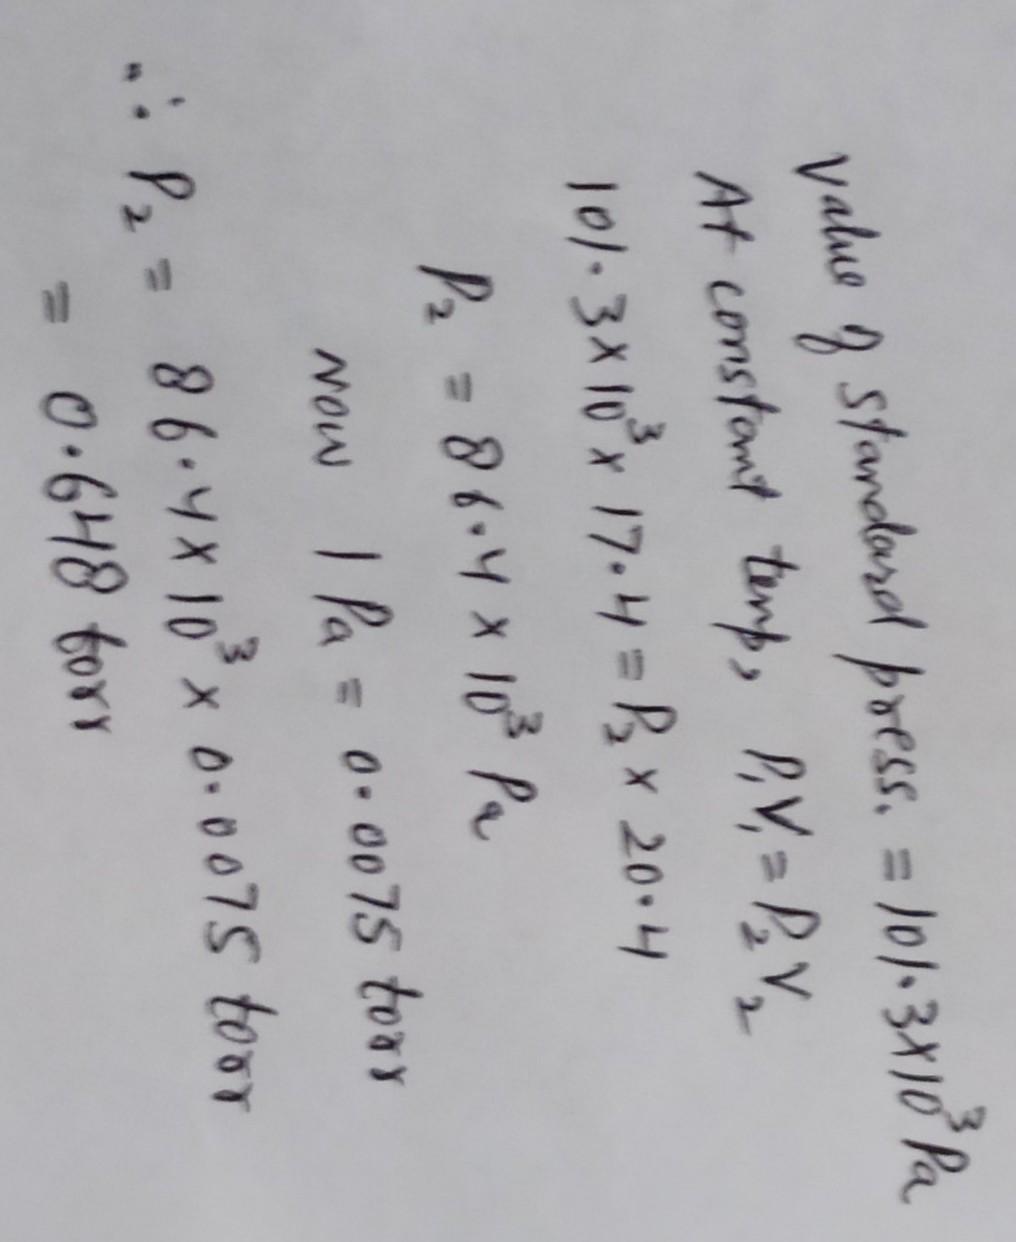 Value of standard press. = 101.3x10³ Pa
At constant temp, P₁V₁ = P₂V₂
101.3x10³ x 17.4 = P₂ x 20.4
P₂ = 86.4 x 10³ Pa
Now 1 Pa = 0.0075 torr
∴ P₂ = 86.4x10³ x 0.0075 torr
= 0.648 torr